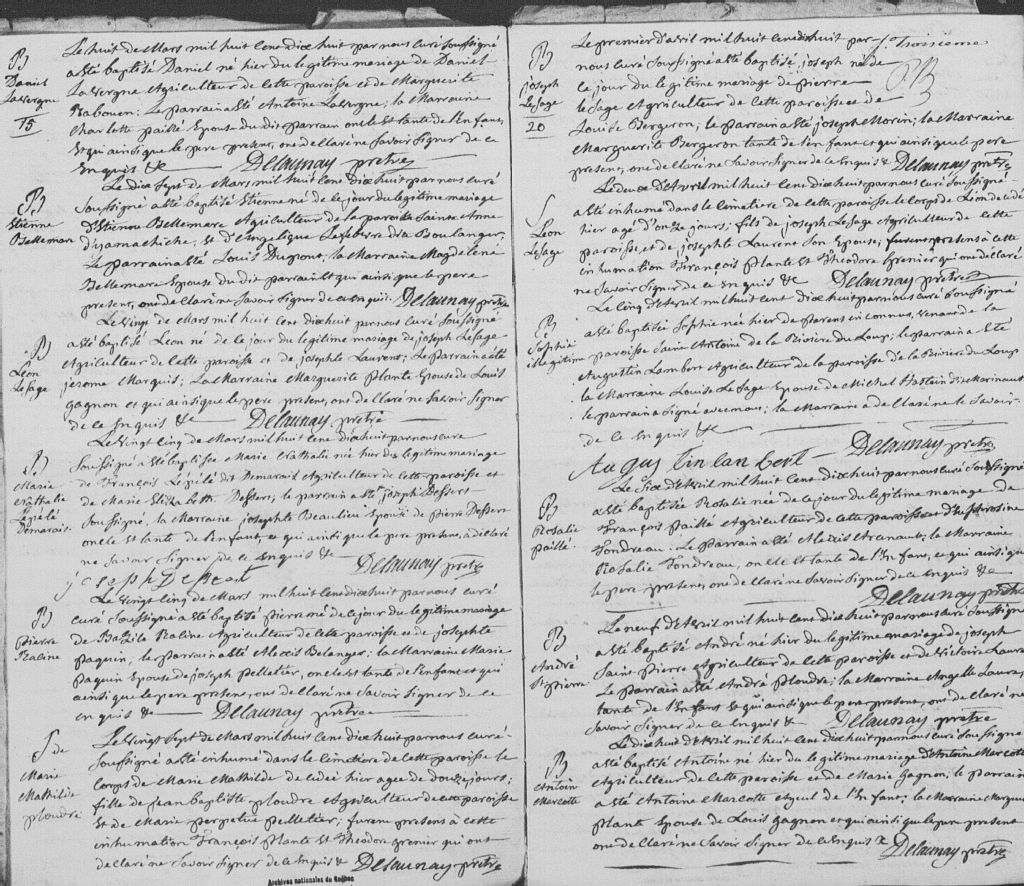 B
Daniel
Lavergne
15
Le huit de Mars mil huit cent dix huit par nous curé soussigné
a été baptisé Daniel né hier du légitime mariage de Daniel
Lavergne Agriculteur de cette paroisse et de Marguerite
Rabouen: le parrain a été Antoine Lavergne; la Marraine
Charlotte paillé Epouse du dit parrain oncle et tante de l'enfant,
et qui ainsi que le pere present, ont declaré ne Savoir Signer de ce
Enquis &c Delaunay prêtre
B
Etienne
Bellemare
Le dix Sept de Mars mil huit cent dix huit par nous curé
Soussigné a été baptisé Etienne né de ce jour du legitime mariage
d'Etienne Bellemare Agriculteur de la paroisse Sainte Anne
d'yamachiche, et d'Angelique Lefebvre dit Boulanger,
Le parrain a été Louis Dupont, la Marraine Magdelene
Bellemare Epouse du dit parrain et qui ainsi que le pere
present, ont declaré ne Savoir Signer de ce enquis. Delaunay prêtre
B
Léon
LeSage
Le vingt de Mars mil huit cent dix huit par nous curé Soussigné
a été baptisé Léon né de ce jour du legitime mariage de joseph LeSage
Agriculteur de cette paroisse et de josephte Laurent; Le parrain a été
jerome Marquis; la Marraine Marguerite Plante Epouse de Louis
gagnon et qui ainsi que le pere present, ont declaré ne Savoir Signer
de ce Enquis &c Delaunay prêtre
B
Marie
Nathalie
Lepélé
Démarais
Le vingt cinq de Mars mil huit cent dix huit par nous curé
Soussigné a été baptisée Marie Nathalie née hier du légitime mariage
de François Lepélé dit Demarais Agriculteur de cette paroisse et
de Marie Elizabeth Dessert; le parrain a été joseph Dessert
Soussigné, la Marraine josephte Beaulieu Epouse de pierre Dessert
oncle et tante de l'enfant, et qui ainsi que le pere present, a declaré
ne Savoir Signer de ce Enquis &c
joseph Delaunay prêtre
B
pierre
Le vingt cinq de Mars mil huit cent dix huit par nous curé
curé Soussigné a été baptisé pierre né de ce jour du legitime mariage
de Bazile Agriculteur de cette paroisse et de josephte
paquin, le parrain a été Alexis Belanger; la Marraine Marie
paquin Epouse de joseph Pelletier, oncle et tante de l'enfant et qui
ainsi que le pere present, ont declaré ne Savoir Signer de ce
enquis &c Delaunay prêtre
S de
Marie
Mathilde
plourde
Le vingt Sept de Mars mil huit cent dix huit par nous curé
Soussigné a été inhumé dans le cemetiere de cette paroisse le
corps de Marie Mathilde decedée hier agée de douze jours;
fille de jean baptiste plourde Agriculteur de cette paroisse
et de Marie perpetue pelletier; furent presens à cette
inhumation François Plante et Theodore Grenier qui ont
declaré ne Savoir Signer de ce Enquis &c Delaunay prêtre
Archives nationales du Québec
B
joseph
LeSage
20
Le premier d'avril mil huit cent dix huit par troisieme
nous curé Soussigné a été baptisé joseph né de
ce jour du legitime mariage de pierre
LeSage Agriculteur de cette paroisse et de
Louise Bergeron; le parrain a été joseph Morin; la Marraine
Marguerite Bergeron tante de l'enfant et qui ainsi que le pere
present, ont declaré ne Savoir Signer de ce Enquis &c Delaunay prêtre
S
Léon
LeSage
Le deux d'Avril mil huit cent dix huit par nous curé Soussigné
a été inhumé dans le cemetiere de cette paroisse le corps de Léon decedé
hier agé d'onze jours; fils de joseph LeSage Agriculteur de cette
paroisse, et de josephte Laurent Son Epouse; furent presens à cette
inhumation François Plante et Theodore Grenier qui ont declaré
ne Savoir Signer de ce Enquis &c Delaunay prêtre
B
Sophie
illegitime
Le cinq d'Avril mil huit cent dix huit par nous curé Soussigné
a été baptisée Sophie née hier de Parents inconnus, venant de la
paroisse Saint Antoine de la Riviere du Loup; le parrain a été
Augustin Lambert Agriculteur de la paroisse de la Riviere du Loup
la Marraine Louise LeSage Epouse de Michel dit Marinaux
le parrain a Signé avec nous; la Marraine a declaré ne le Savoir
de ce Enquis &c
Augustin lanbert Delaunay prêtre
B
Rosalie
paillé.
Le Six d'Avril mil huit cent dix huit par nous curé Soussigné
a été baptisée Rosalie née de ce jour du légitime mariage de
François Paillé Agriculteur de cette paroisse et d'Euphrosine
Tondreau. Le Parrain a été Alexis Arcenaut; la Marraine
Rosalie Tondreau, oncle et tante de l'Enfant, et qui ainsi que
le pere present, ont declaré ne Savoir Signer de ce Enquis &c
Delaunay prêtre
B
André
St pierre.
Le neuf d'Avril mil huit cent dix huit par nous curé Soussigné
a été baptisé André né hier du légitime mariage de joseph
Saint Pierre Agriculteur de cette paroisse et de Victoire Laurent
Le parrain a été André Plourde; la Marraine Angelle Laurent
tante de l'Enfant et qui ainsi que le pere present, ont declaré ne
Savoir Signer de ce Enquis &c Delaunay prêtre
B
Antoine
Marcotte
Le dix huit d'Avril mil huit cent dix huit par nous curé Soussigné
a été baptisé Antoine né hier du legitime mariage d'Antoine Marcotte
Agriculteur de cette paroisse et de Marie Gagnon; le parrain
a été Antoine Marcotte Ayeul de l'Enfant; la Marraine Marguerite
Plante Epouse de Louis Gagnon et qui ainsi que le pere present
ont declaré ne Savoir Signer de ce Enquis &c Delaunay prêtre